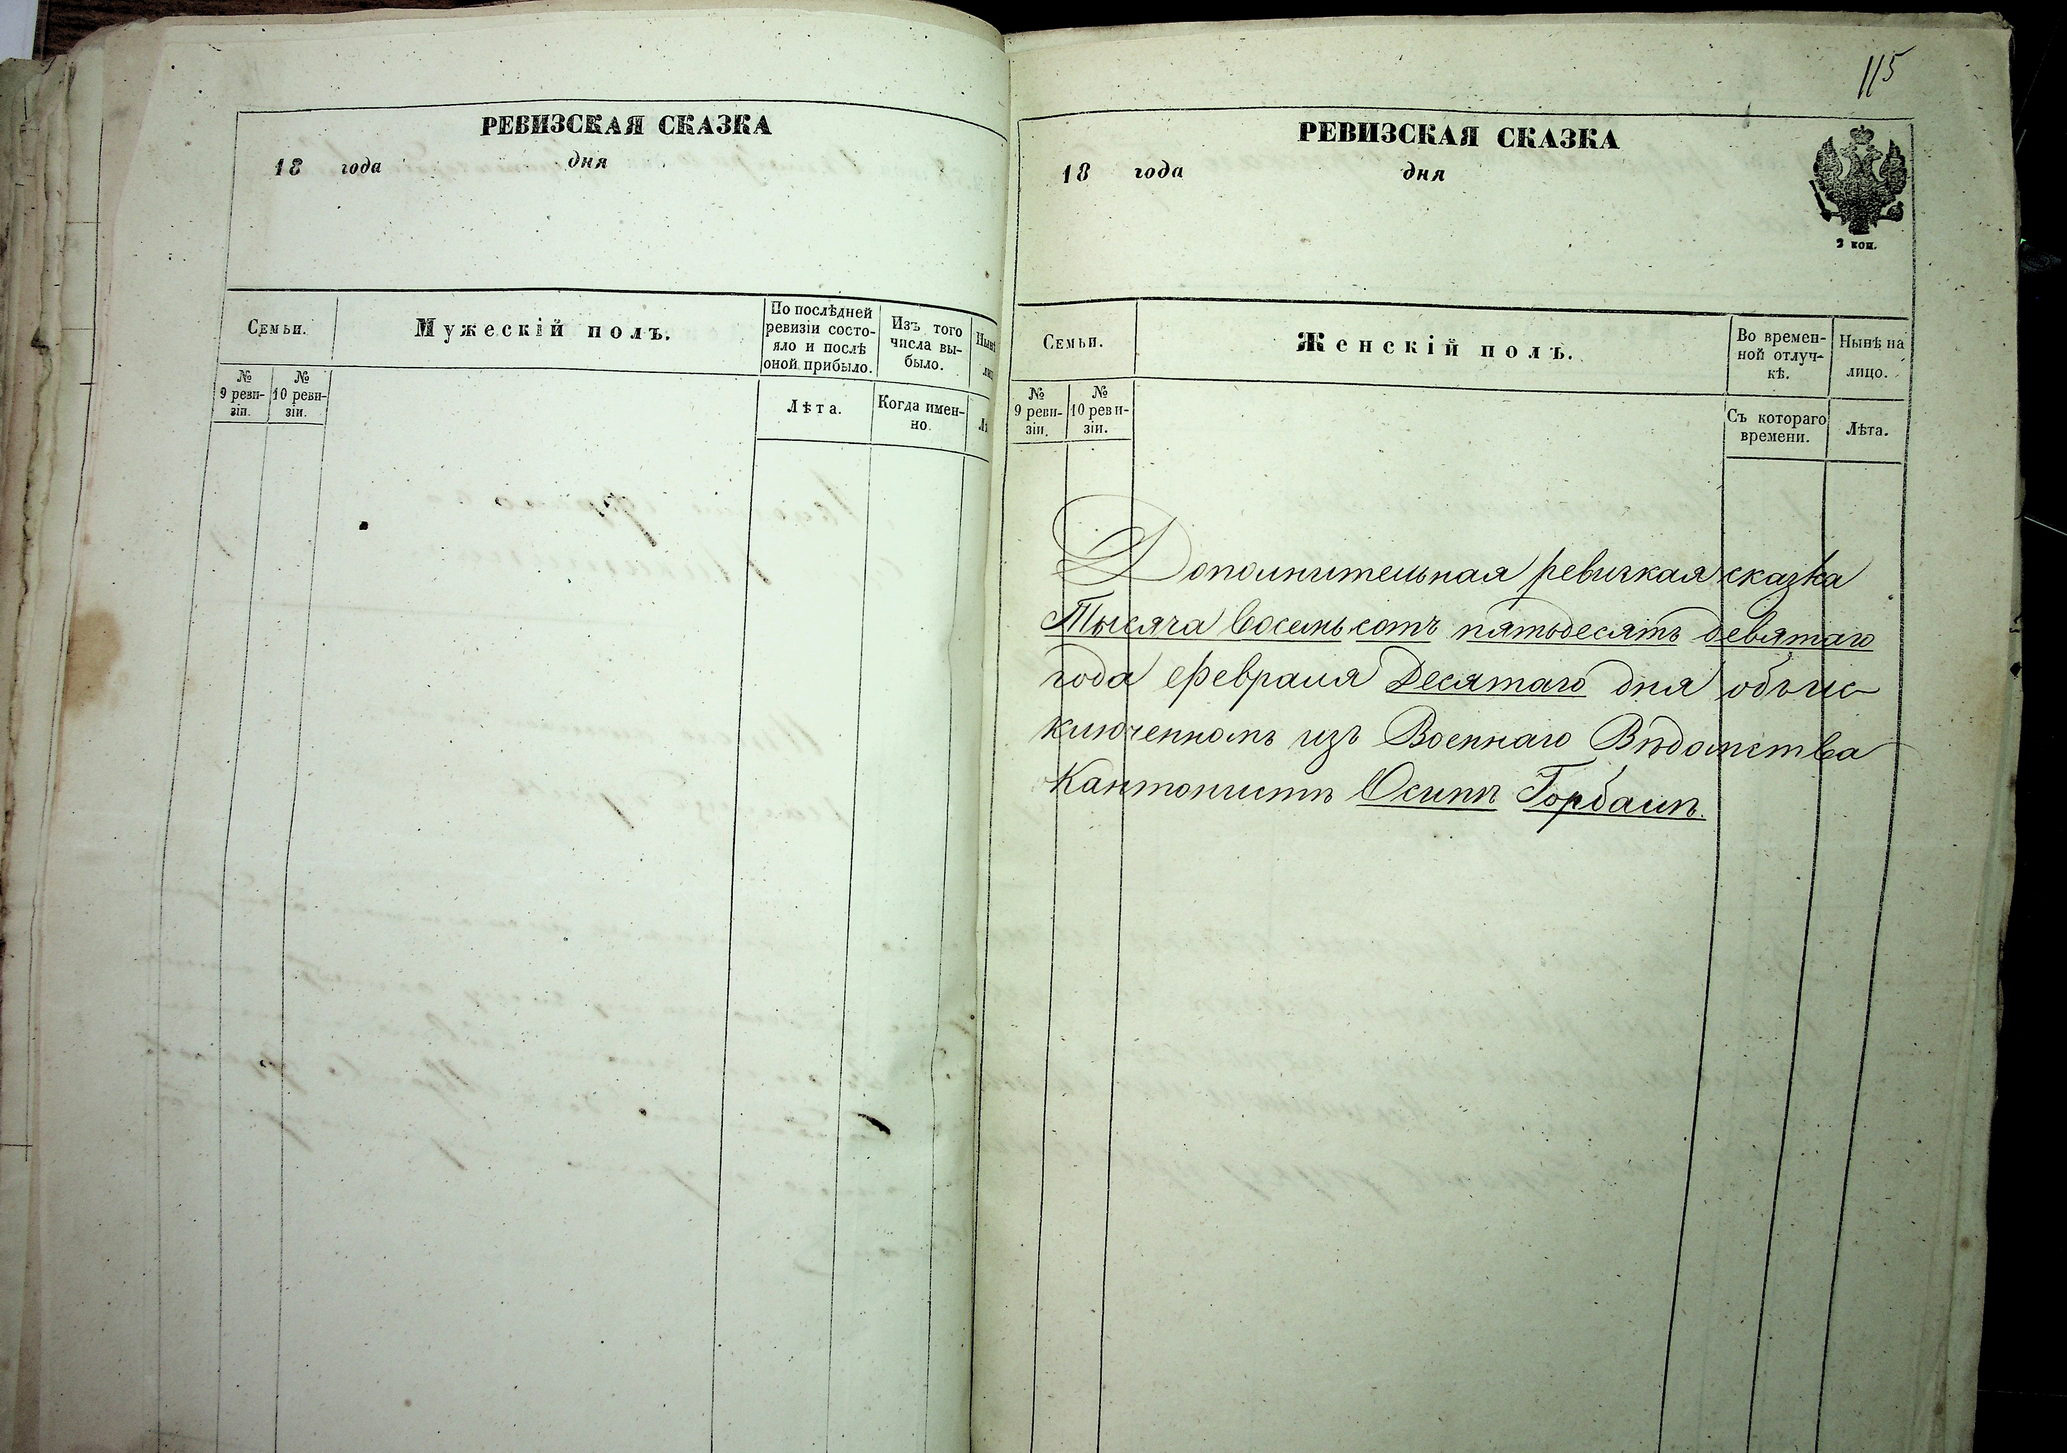 РЕВИЗСКАЯ СКАЗКА
18 года дня
Семьи.
Мужескій полъ.
По послѣдней
ревизіи состо-
яло и послѣ
оной прибыло.
Изъ того
числа вы-
было.
Нынѣ
№
9 реви-
зіи.
№
10 реви-
зіи.
Лѣта.
Когда имен-
но.
115
РЕВИЗСКАЯ СКАЗКА
18 года дня
2 коп.
Семьи.
Женскій полъ.
Во времен-
ной отлуч-
кѣ.
Нынѣ на
лицо.
№
9 реви-
зіи.
№
10 реви-
зіи.
Съ котораго
времени.
Лѣта.
Дополнительная ревизкая сказка
Тысяча восемьсотъ пятьдесятъ девятаго
года февраля Десятаго дня объ ис-
ключенномъ изъ Военнаго Вѣдомства
Кантонистѣ Осипѣ Горбаль.